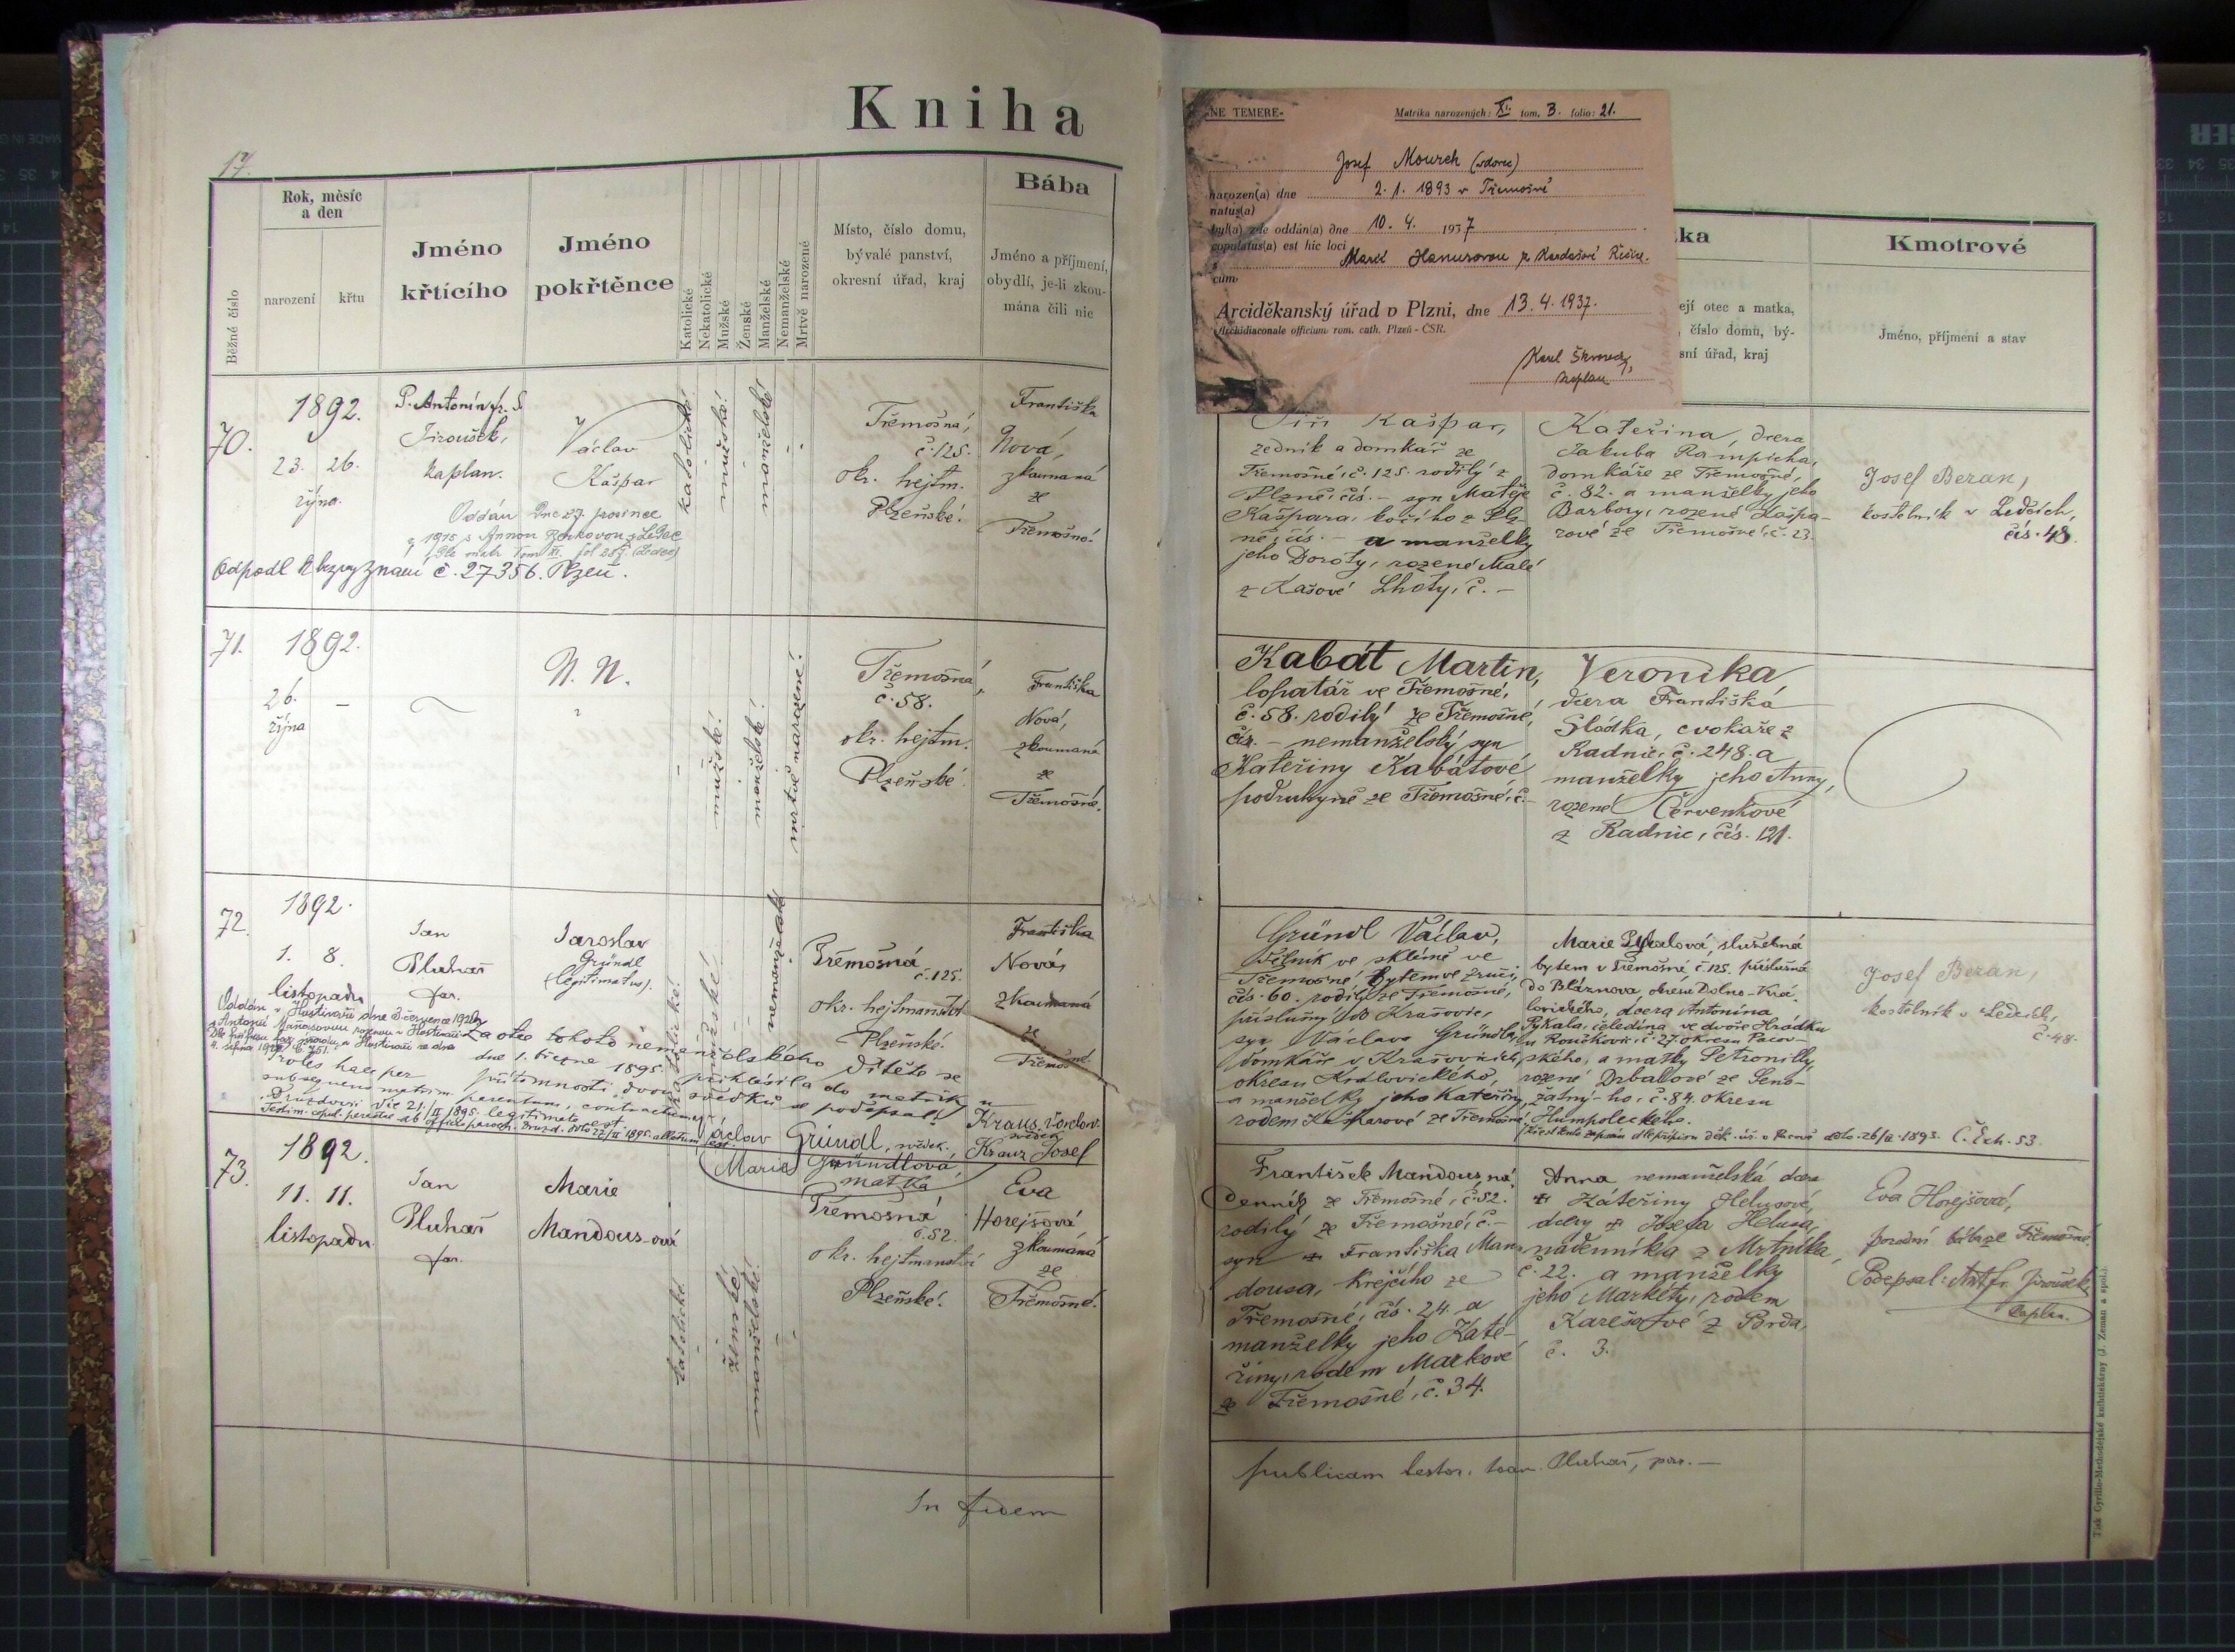 Kniha
17.
Běžné číslo
Rok, měsíc
a den
narození
křtu
Jméno
křtícího
Jméno
pokřtěnce
Katolické
Nekatolické
Mužské
Ženské
Manželské
Nemanželské
Mrtvě narozené
Místo, číslo domu,
bývalé panství,
okresní úřad, kraj
Bába
Jméno a příjmení,
obydlí, je-li zkou-
mána čili nic
70.
1892.
23. 26.
října.
P. Antonín fr. S.
Jiroušek,
kaplan.
Václav
Kašpar
katolické!
mužské!
manželské!
Třemošná,
č. 125.
okr. hejtm.
Plzeňské!
Františka
Nová,
zkoumaná
ze
Třemošné!
Oddán dne 27. prosince
1915 s Annou
Odpadl bez vyznání č. 27356. Plzeň.
71.
1892.
26.
října
–
N. N.
mužské!
manželské!
mrtvě narozené!
Třemošná,
č. 58.
okr. hejtm.
Plzeňské!
Františka
Nová,
zkoumaná
ze
Třemošné.
72.
1892.
1. 8.
listopadu
Jan
Pluhař
far.
Jaroslav
Gründl
(legitimatus).
katolické!
mužské!
nemanželské
Třemošná
č. 125.
okr. hejtmanství
Plzeňské.
Františka
Nová,
zkoumaná
ze
Třemošné.
Oddán v Hostivaři dne 3 července 1920
s Antonií
Za otce tohoto nemanželského dítěte se
dne 1. března 1895. přihlásil a do matriky
přítomnosti dvou svědků se podepsal!
Proles haec per
subsequens matrim. parentum, contractum
21/II 1895. legitimata est.
Václav Gründl, svědek.
Kraus Čeněk
svědek
Kraus Josef
Marie Gründlová,
matka
73.
1892.
11. 11.
listopadu.
Jan
Pluhař
far.
Marie
Mandous-ová
katolické!
ženské!
manželské!
Třemošná
č. 52.
okr. hejtmanství
Plzeňské!
Eva
Horejšová
zkoumaná
ze
Třemošné!
In fidem
-NE TEMERE-
Matrika narozených: XI. tom. B. folio: 21.
Josef Mourek (vdovec)
narozen(a) dne 2. 1. 1893 v Třemošné
natus(a)
byl(a) zde oddán(a) dne 10. 4. 1937
copulatus(a) est hic loci
s Marií Hanusovou z Kardašovi Řečice.
cum
Arciděkanský úřad v Plzni, dne 13. 4. 1937.
Archidiaconale officium rom. cath. Plzeň - ČSR.
Karel
kaplan
ka
ejí otec a matka,
, číslo domu, bý-
sní úřad, kraj
Kmotrové
Jméno, příjmení a stav
Jiří Kašpar,
zedník a domkář ze
Třemošné, č. 125. rodilý z
Plzně, čís. – syn Matěje
Kašpara, kočího z Plz-
ně, čís. – a manželky
jeho Doroty, rozené Malé
z Kašové Lhoty, č. –
Kateřina, dcera
Jakuba Rampicha,
domkáře ze Třemošné,
č. 82. a manželky jeho
Barbory, rozené Kašpa-
rové ze Třemošné, č. 23.
Josef Beran,
kostelník v Ledcích,
čís. 48.
Kabát Martin,
lopatář ve Třemošné,
č. 58. rodilý ze Třemošné,
čís. – nemanželský syn
Kateřiny Kabátové
podruhyně ze Třemošné, č. –
Veronika
dcera Františka
Sladka, cvokaře z
Radnic, č. 248. a
manželky jeho Anny,
rozené Červenkové
z Radnic, čís. 121.
Gründl Václav,
dělník ve sklárně ve
Třemošné bytem ve Zruči,
čís. 60. rodilý ze Třemošné,
příslušný do Krašovic,
syn Václava Gründla,
domkáře v Krašovicích,
okresu Kralovického,
a manželky jeho Kateřiny,
rodem Kašparové ze Třemošné.
Marie Pykalová, služebná
bytem v Třemošné č. 125. příslušná
do Bláznova, okresu Dolno-Kra-
lovického, dcera Antonína
Pykala, čeledína ve dvoře Hrádku
u Roučkovic č. 27. okresu Pacov-
ského, a matky Petronilly,
rozené Drbalové ze Seno-
žatný-ho, č. 84. okresu
Humpoleckého.
Josef Beran,
kostelník v Ledcích,
č. 48.
František Mandous, ná-
denník ze Třemošné, č. 52.
rodilý ze Třemošné, č. –
syn Františka Man-
dousa, krejčího ze
Třemošné, čís. 24. a
manželky jeho Kate-
řiny, rodem Markové
ze Třemošné, č. 34.
Anna nemanželská dcera
Kateřiny Helusové,
dcery Josefa Helusa,
nádenníka z Mrtníka,
č. 22. a manželky
jeho Markéty, rodem
Karešové z Brda,
č. 3.
Eva Horejšová,
porodní bába ze Třemošné.
Podepsal: Ant. fr. Jiroušek
kaplan.
publicam testor. Joan. Pluhař, par. –
Tisk Cyrillo-Methodějské knihtiskárny (J. Zeman a spol.).